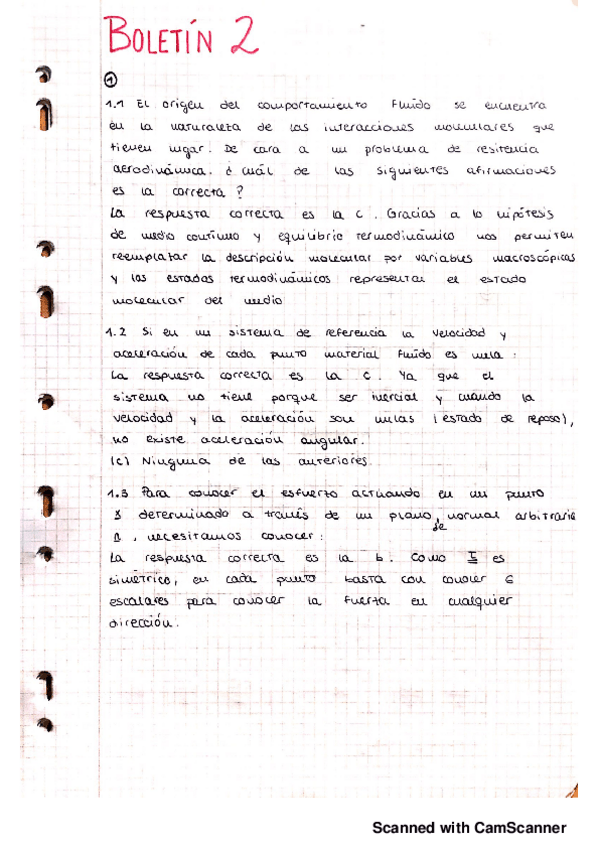 BOLETÍN 2
1
1.1 El origen del comportamiento fluido se encuentra
en la naturaleza de las interacciones moleculares que
tienen lugar. De cara a un problema de resitencia
aerodinámica. ¿ cuál de las siguientes afirmaciones
es la correcta ?
La respuesta correcta es la c. Gracias a la hipótesis
de medio contínuo y equilibrio termodinámico nos permiten
reemplazar la descripción molecular por variables macroscópicas
y los estados termodinámicos representar el estado
molecular del medio
1.2 Si en un sistema de referencia la velocidad y
aceleración de cada punto material fluido es nula :
La respuesta correcta es la c. Ya que el
sistema no tiene porque ser inercial y cuando la
velocidad y la aceleración son nulas (estado de reposo),
no existe aceleración angular.
(c) Ninguna de las anteriores.
1.3 Para conocer el esfuerzo actuando en un punto
x determinado a través de un plano de normal arbitraria
n , necesitamos conocer :
La respuesta correcta es la b. Como τ es
simétrico, en cada punto basta con conocer 6
escalares para conocer la fuerza en cualquier
dirección.
Scanned with CamScanner